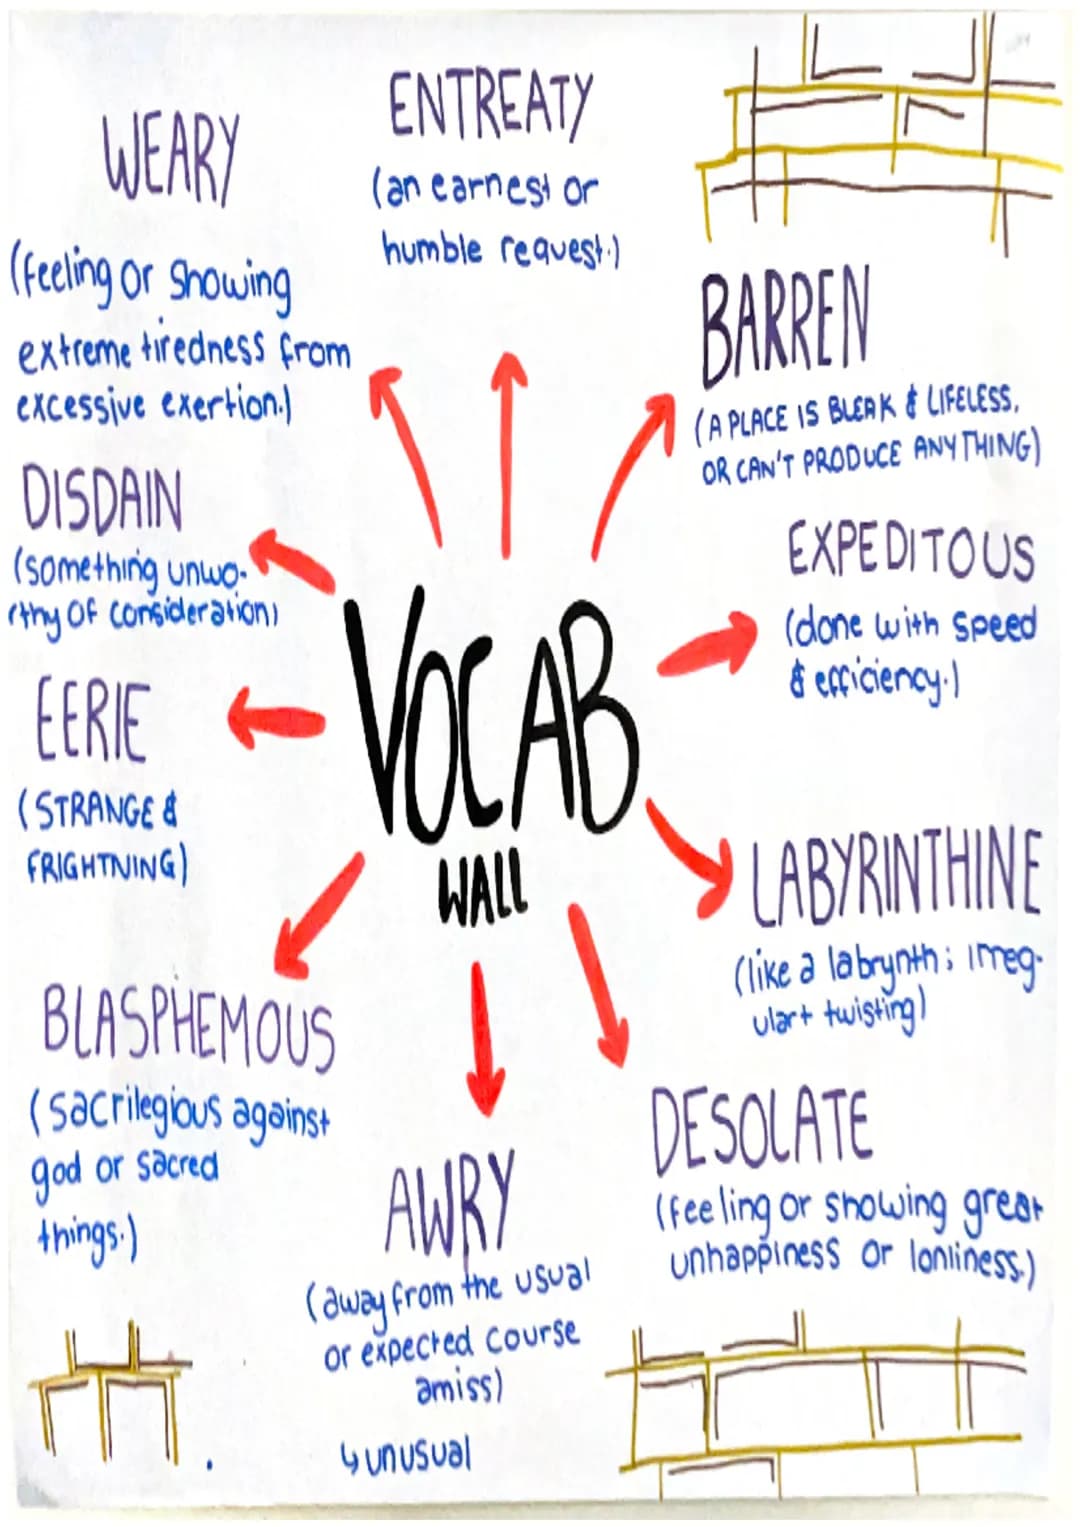 WEARY
(feeling or showing
extreme tiredness from
excessive exertion.)
ENTREATY
(an earnest or
humble request.)
BARREN
(A PLACE IS BLEAK & LIFELESS,
OR CAN'T PRODUCE ANYTHING)
DISDAIN
(something unwo-
rthy of consideration)
EXPEDITOUS
(done with speed
& efficiency.)
EERIE
(STRANGE &
FRIGHTNING)
VOCAB
WALL
LABYRINTHINE
(like a labrynth; irreg-
ular+ twisting)
BLASPHEMOUS
(sacrilegious against
god or sacred
things.)
AWRY
(away from the usual
or expected course
amiss)
↳ unusual
DESOLATE
(feeling or showing great
unhappiness or lonliness.)